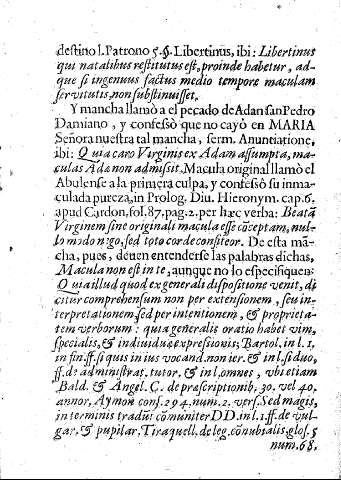 destino l. Patrono 5. §. Libertinus, ibi: Libertinus
qui natalibus restitutus est, proinde habetur, ad-
que si ingenuus factus medio tempore maculam
servitutis, non substinuisset.
Y mancha llamò a el pecado de Adan san Pedro
Damiano, y confessò que no cayò en MARIA
Señora nuestra tal mancha, serm. Anuntiatione,
ibi: Quia caro Virginis ex Adam assumpta, ma-
culas Adæ non admisit. Macula original llamò el
Abulense a la primera culpa, y confessò su inma-
culada pureza, in Prolog. Diu. Hieronym. cap. 6.
apud Cardon, fol. 87. pag. 2. per hæc verba: Beatã
Virginem sine originali macula esse cõceptam, nul-
lo modo nego, sed toto corde consiteor. De esta mã-
cha, pues, deuen entenderse las palabras dichas,
Macula non est in te, aunque no lo especifiquen:
Quia illud quod ex generali dispositione venit, di
citur comprehensum non per extensionem, seu in-
terpretationem, sed per intentionem, & proprieta-
tem verborum: quia generalis oratio habet vim,
specialis, & indiuiduæ expresionis; Bartol. in l. 1.
in fin. ff. si quis in ius vocand. non ier. & in l. si duo,
ff. de administrat. tutor. & in l. omnes, vbi etiam
Bald. & Angel. C. de præscriptionib. 30. vel 40.
annor. Aymon cons. 294. num. 2. vers. Sed magis,
in terminis tradũt cõmuniter DD. in l. 1. ff. de vul-
gar. & pupilar. Tiraquell. de leg. cõnubialis, glos. 5
num. 68.